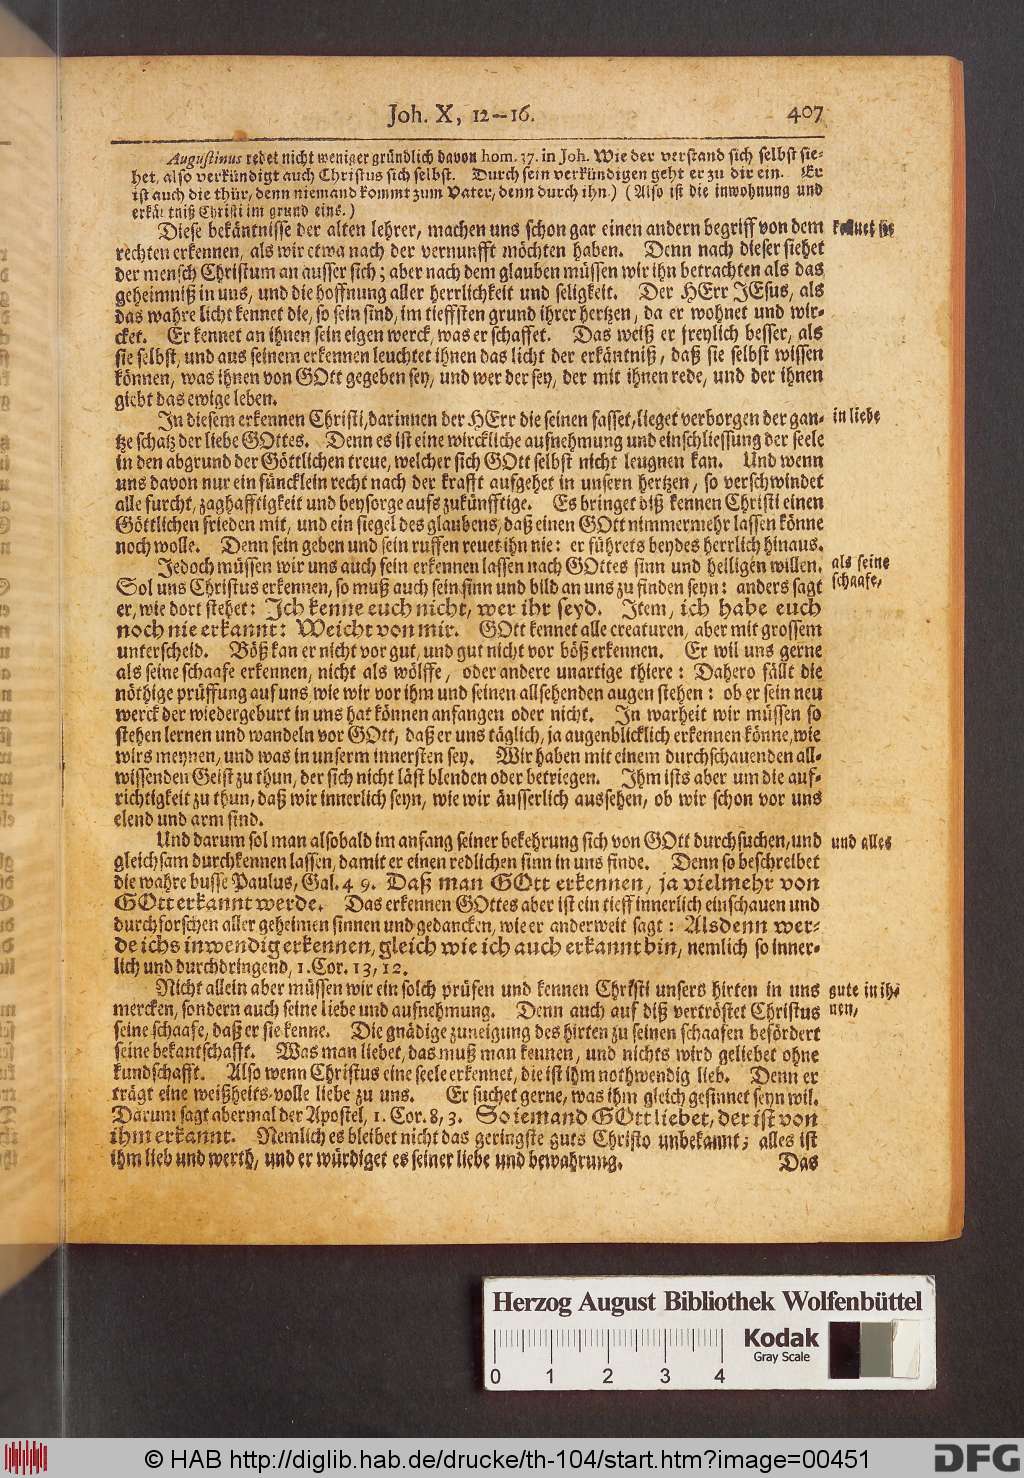 Joh. X, 12-16. 407
Augustinus redet nicht weniger gründlich davon hom. 37. in Joh. Wie der verstand sich selbst sie-
het, also verkündigt auch Christus sich selbst. Durch sein verkündigen geht er zu dir ein. Er
ist auch die thür, denn niemand kommt zum Vater, denn durch ihn.) (Also ist die inwohnung und
erkäntniß Christi im grund eins.)
Diese bekäntnisse der alten lehrer, machen uns schon gar einen andern begriff von dem kennet sie
rechten erkennen, als wir etwa nach der vernunfft möchten haben. Denn nach dieser siehet
der mensch Christum an ausser sich; aber nach dem glauben müssen wir ihn betrachten als das
geheimniß in uns, und die hoffnung aller herrlichkeit und seligkeit. Der HErr JEsus, als
das wahre licht kennet die, so sein sind, im tieffsten grund ihrer hertzen, da er wohnet und wir-
cket. Er kennet an ihnen sein eigen werck, was er schaffet. Das weiß er freylich besser, als
sie selbst, und aus seinem erkennen leuchtet ihnen das licht der erkäntniß, daß sie selbst wissen
können, was ihnen von GOtt gegeben sey, und wer der sey, der mit ihnen rede, und der ihnen
giebt das ewige leben.
In diesem erkennen Christi, darinnen der HErr die seinen fasset, lieget verborgen der gan- in liebe
tze schatz der liebe GOttes. Denn es ist eine wirckliche aufnehmung und einschliessung der seele
in den abgrund der Göttlichen treue, welcher sich GOtt selbst nicht leugnen kan. Und wenn
uns davon nur ein füncklein recht nach der krafft aufgehet in unsern hertzen, so verschwindet
alle furcht, zaghafftigkeit und beysorge aufs zukünfftige. Es bringet diß kennen Christi einen
Göttlichen frieden mit, und ein siegel des glaubens, daß einen GOtt nimmermehr lassen könne
noch wolle. Denn sein geben und sein ruffen reuet ihn nie: er führets beydes herrlich hinaus.
Jedoch müssen wir uns auch sein erkennen lassen nach GOttes sinn und heiligen willen. als seine
Sol uns Christus erkennen, so muß auch sein sinn und bild an uns zu finden seyn: anders sagt schaafe,
er, wie dort stehet: Ich kenne euch nicht, wer ihr seyd. Item, ich habe euch
noch nie erkannt: Weicht von mir. GOtt kennet alle creaturen, aber mit grossem
unterscheid. Böß kan er nicht vor gut, und gut nicht vor böß erkennen. Er wil uns gerne
als seine schaafe erkennen, nicht als wölffe, oder andere unartige thiere: Dahero fällt die
nöthige prüffung auf uns, wie wir vor ihm und seinen allsehenden augen stehen: ob er sein neu
werck der wiedergeburt in uns hat können anfangen oder nicht. In warheit wir müssen so
stehen lernen und wandeln vor GOtt, daß er uns täglich, ja augenblicklich erkennen könne, wie
wirs meynen, und was in unserm innersten sey. Wir haben mit einem durchschauenden all-
wissenden Geist zu thun, der sich nicht läst blenden oder betriegen. Ihm ists aber um die auf-
richtigkeit zu thun, daß wir innerlich seyn, wie wir äusserlich aussehen, ob wir schon vor uns
elend und arm sind.
Und darum sol man alsobald im anfang seiner bekehrung sich von GOtt durchsuchen, und und alles
gleichsam durchkennen lassen, damit er einen redlichen sinn in uns finde. Denn so beschreibet
die wahre busse Paulus, Gal. 4 9. Daß man GOtt erkennen, ja vielmehr von
GOtt erkannt werde. Das erkennen GOttes aber ist ein tieff innerlich einschauen und
durchforschen aller geheimen sinnen und gedancken, wie er anderweit sagt: Alsdenn wer-
de ichs inwendig erkennen, gleich wie ich auch erkannt bin, nemlich so inner-
lich und durchdringend, 1. Cor. 13, 12.
Nicht allein aber müssen wir ein solch prüfen und kennen Christi unsers hirten in uns gute in ih-
mercken, sondern auch seine liebe und aufnehmung. Denn auch auf diß vertröstet Christus nen,
seine schaafe, daß er sie kenne. Die gnädige zuneigung des hirten zu seinen schaafen befördert
seine bekantschafft. Was man liebet, das muß man kennen, und nichts wird geliebet ohne
kundschafft. Also wenn Christus eine seele erkennet, die ist ihm nothwendig lieb. Denn er
trägt eine weißheits-volle liebe zu uns. Er suchet gerne, was ihm gleich gesinnet seyn wil.
Darum sagt abermal der Apostel, 1. Cor. 8, 3. So iemand GOtt liebet, der ist von
ihm erkannt. Nemlich es bleibet nicht das geringste guts Christo unbekannt; alles ist
ihm lieb und werth, und er würdiget es seiner liebe und bewahrung. Das
Herzog August Bibliothek Wolfenbüttel
Kodak
Gray Scale
0 1 2 3 4
© HAB http://diglib.hab.de/drucke/th-104/start.htm?image=00451
DFG